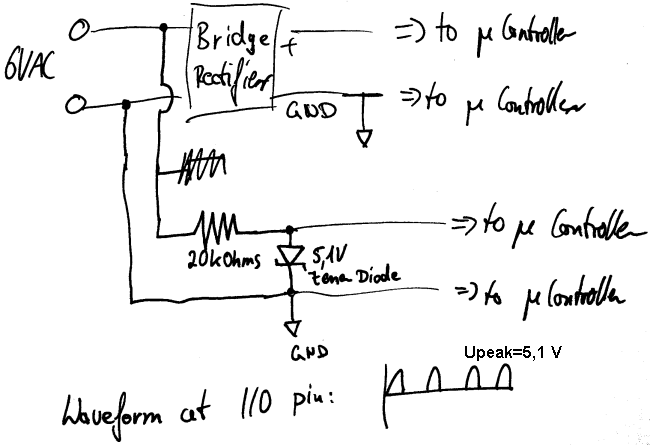 6VAC
Bridge
Rectifier
+
GND
=> to µ Controller
=> to µ Controller
20kOhms
5,1V
Zener Diode
=> to µ Controller
=> to µ Controller
GND
Upeak=5,1 V
Waveform at I/O pin: